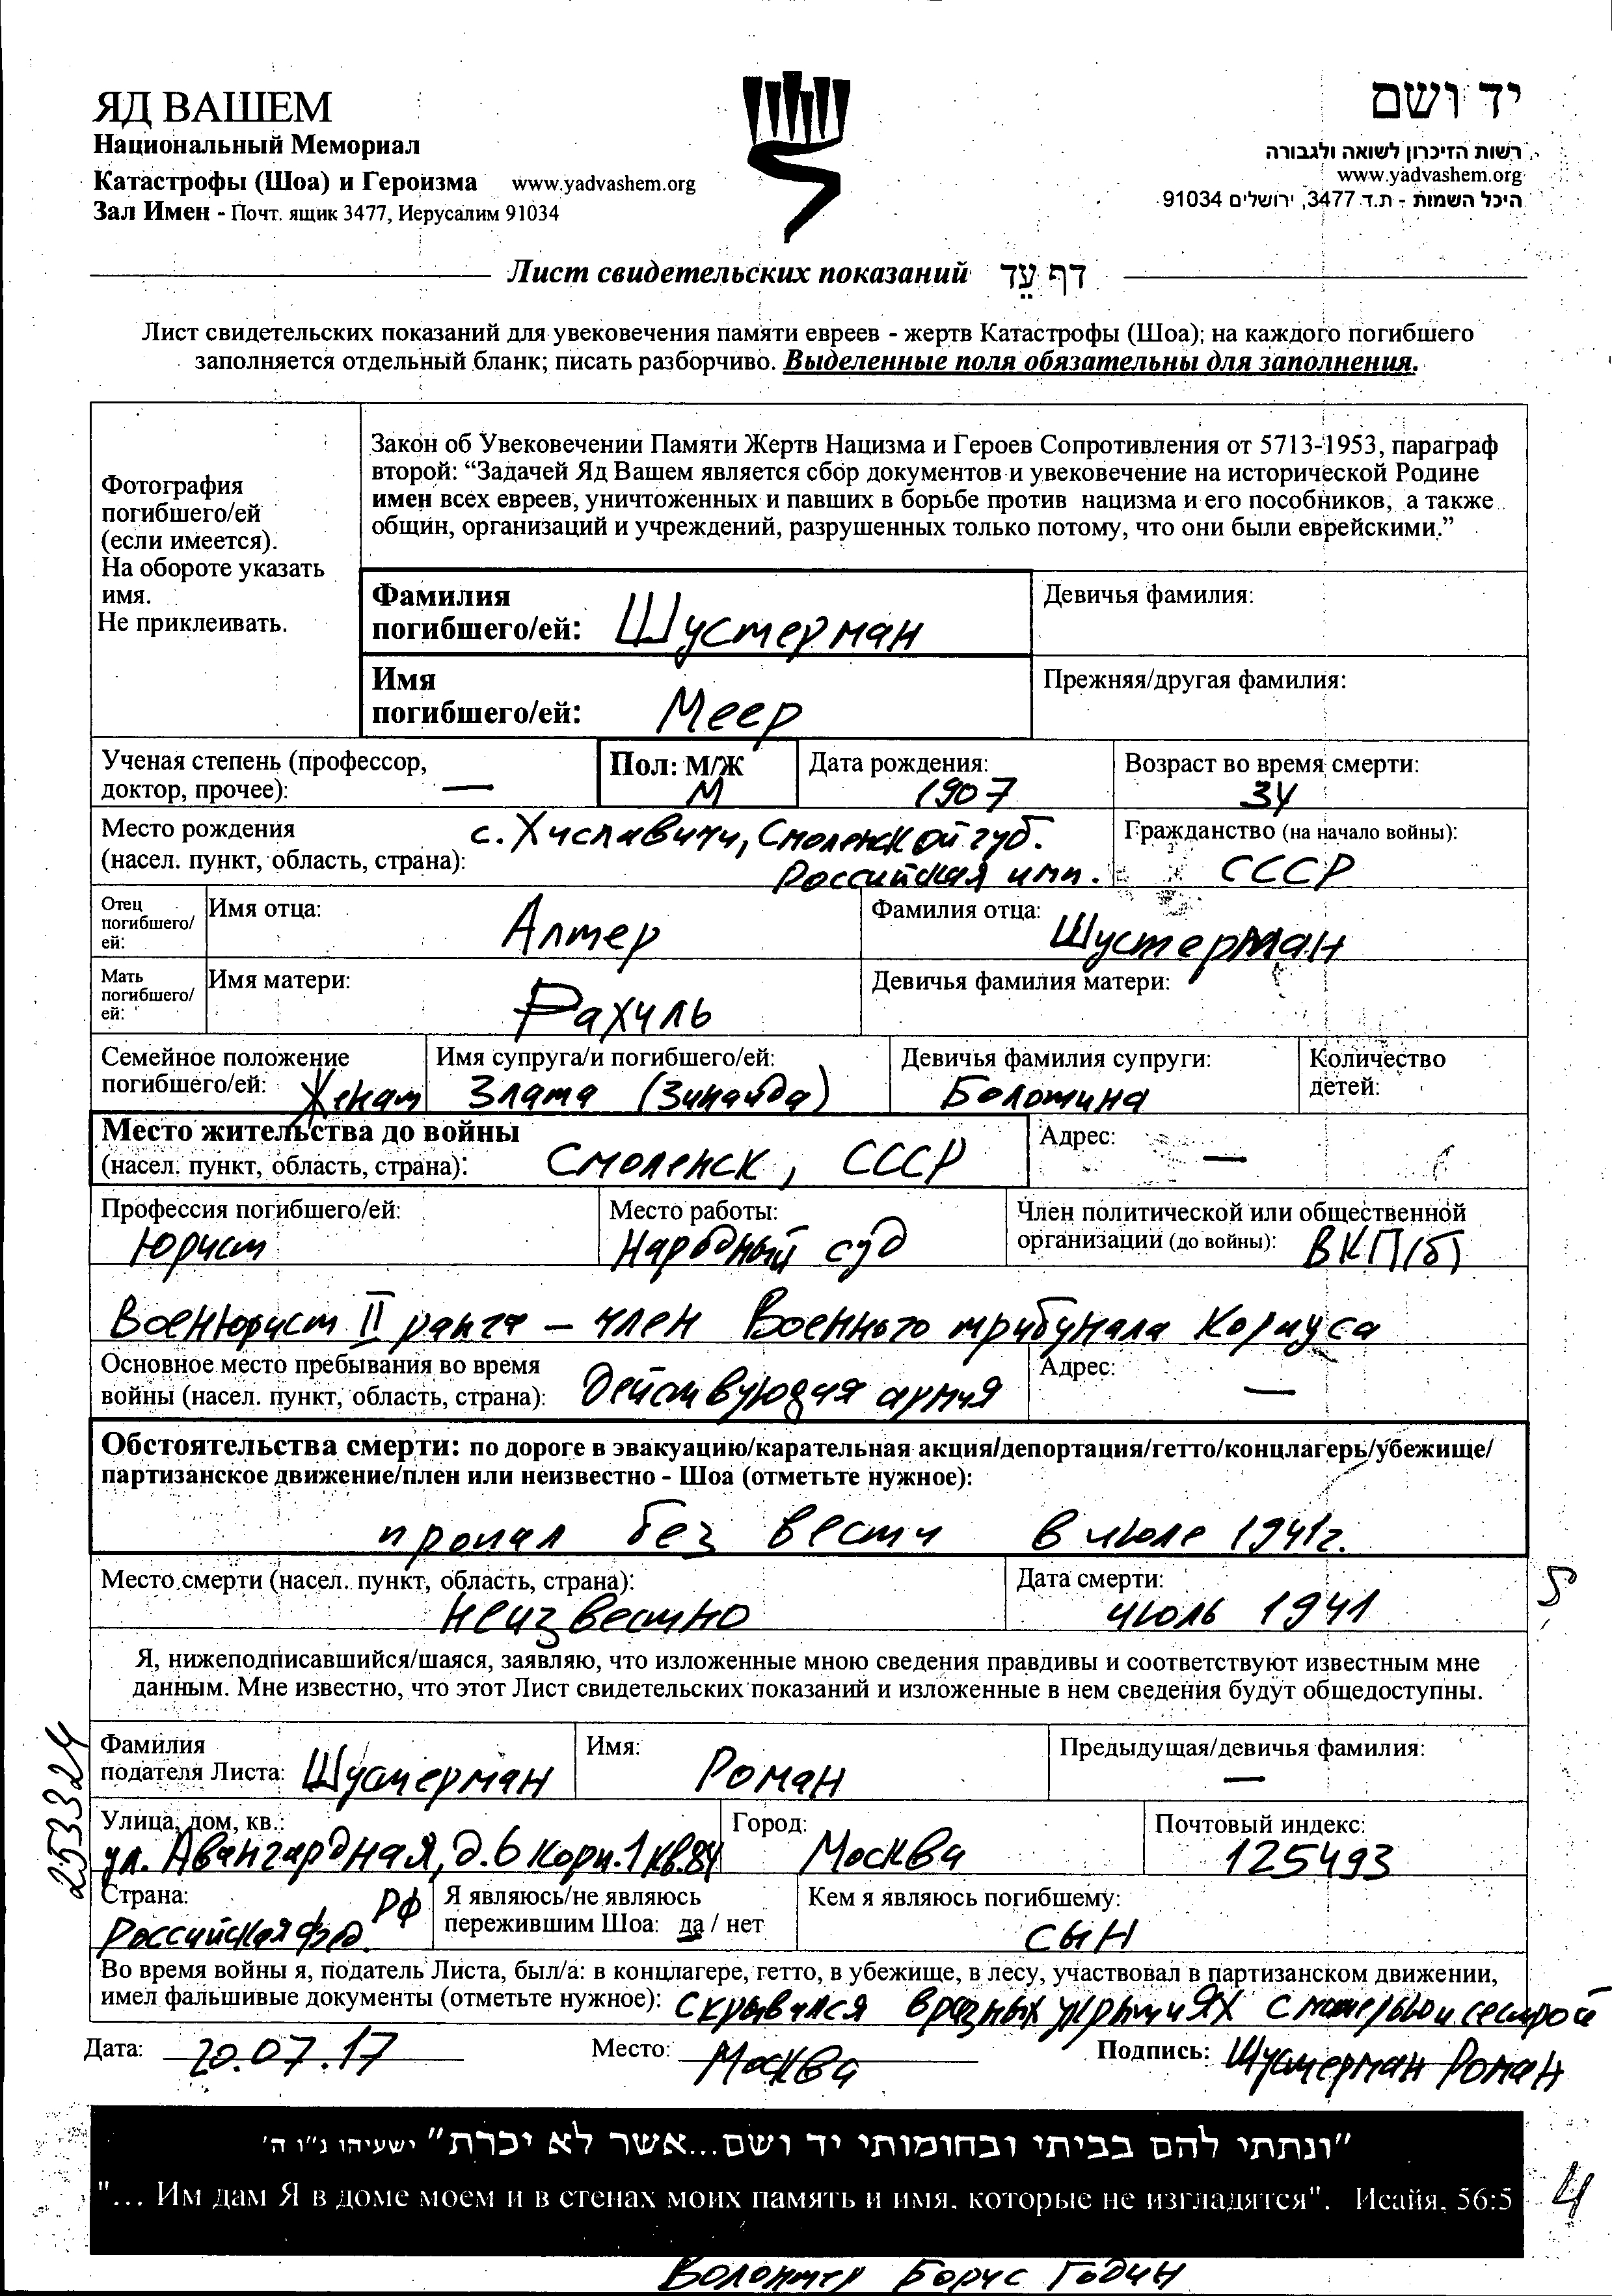 ЯД ВАШЕМ
Национальный Мемориал
Катастрофы (Шоа) и Героизма www.yadvashem.org
Зал Имен - Почт. ящик 3477, Иерусалим 91034
יד ושם
רשות הזיכרון לשואה ולגבורה
www.yadvashem.org
היכל השמות - ת.ד 3477, ירושלים 91034
Лист свидетельских показаний דף עֵד
Лист свидетельских показаний для увековечения памяти евреев - жертв Катастрофы (Шоа); на каждого погибшего
заполняется отдельный бланк; писать разборчиво. Выделенные поля обязательны для заполнения.
Фотография
погибшего/ей
(если имеется).
На обороте указать
имя.
Не приклеивать.
Закон об Увековечении Памяти Жертв Нацизма и Героев Сопротивления от 5713-1953, параграф
второй: “Задачей Яд Вашем является сбор документов и увековечение на исторической Родине
имен всех евреев, уничтоженных и павших в борьбе против нацизма и его пособников, а также
общин, организаций и учреждений, разрушенных только потому, что они были еврейскими.”
Фамилия
погибшего/ей: Шустерман
Девичья фамилия:
Имя
погибшего/ей: Меер
Прежняя/другая фамилия:
Ученая степень (профессор,
доктор, прочее): —
Пол: М/Ж
М
Дата рождения:
1907
Возраст во время смерти:
34
Место рождения с. Хиславичи, Смоленской губ.
(насел. пункт, область, страна): Российская имп.
Гражданство (на начало войны):
СССР
Отец
погибшего/
ей:
Имя отца: Алтер
Фамилия отца: Шустерман
Мать
погибшего/
ей:
Имя матери: Рахиль
Девичья фамилия матери:
Семейное положение
погибшего/ей: Женат
Имя супруга/и погибшего/ей:
Злата (Зинаида)
Девичья фамилия супруги:
Болотина
Количество
детей:
Место жительства до войны
(насел. пункт, область, страна): Смоленск, СССР
Адрес: —
Профессия погибшего/ей:
Юрист
Место работы:
Народный суд
Член политической или общественной
организации (до войны): ВКП(б)
Военюрист II ранга — член Военного трибунала Корпуса
Основное место пребывания во время
войны (насел. пункт, область, страна): Действующая армия
Адрес: —
Обстоятельства смерти: по дороге в эвакуацию/карательная акция/депортация/гетто/концлагерь/убежище/
партизанское движение/плен или неизвестно - Шоа (отметьте нужное):
пропал без вести в июле 1941г.
Место смерти (насел. пункт, область, страна):
неизвестно
Дата смерти:
июль 1941
5
Я, нижеподписавшийся/шаяся, заявляю, что изложенные мною сведения правдивы и соответствуют известным мне
данным. Мне известно, что этот Лист свидетельских показаний и изложенные в нем сведения будут общедоступны.
253324
Фамилия
подателя Листа: Шустерман
Имя: Роман
Предыдущая/девичья фамилия:
—
Улица, дом, кв.:
ул. Авангардная, д.6 корп.1 кв.84
Город: Москва
Почтовый индекс:
125493
Страна: РФ
Российская фед.
Я являюсь/не являюсь
пережившим Шоа: да / нет
Кем я являюсь погибшему:
сын
Во время войны я, податель Листа, был/а: в концлагере, гетто, в убежище, в лесу, участвовал в партизанском движении,
имел фальшивые документы (отметьте нужное): скрывался в разных укрытиях с матерью и сестрой
Дата: 20.07.17 Место: Москва Подпись: Шустерман Роман
"ונתתי להם בביתי ובחומותי יד ושם...אשר לא יכרת" ישעיהו נ"ו ה'
"... Им дам Я в доме моем и в стенах моих память и имя, которые не изгладятся". Исайя, 56:5
4
Волонтер Борис Годин